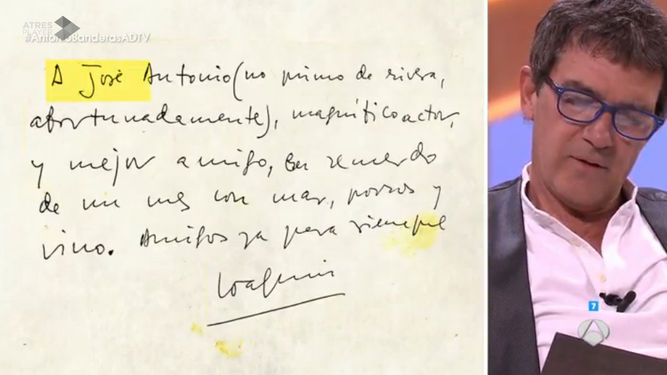 ATRES
PLAYER
#AntonioBanderasADTV
A José Antonio (no primo de rivera,
afortunadamente), magnífico actor,
y mejor amigo, en recuerdo
de un mes con mar, porros y
vino. Amigos ya para siempre
Joaquín
7